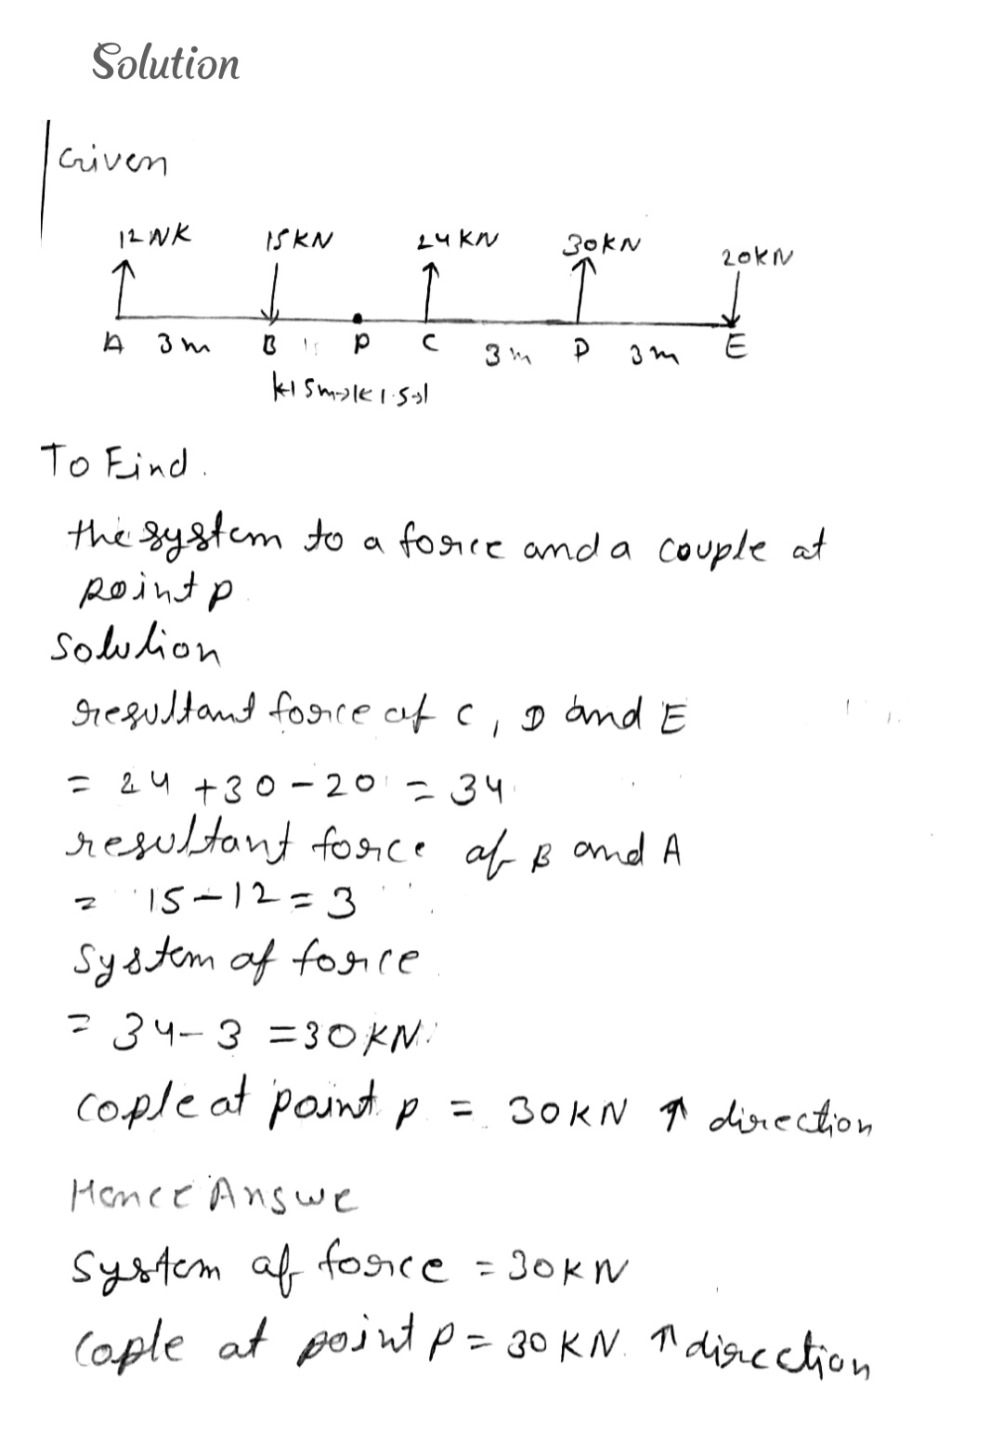 Solution
Given
12 NK 15 KN 24 KN 30KN 20KN
A 3m B P C 3m D 3m E
K1.5m→K1.5→
To Find.
the system to a force and a couple at
point p
Solution
resultant force of C, D and E
= 24 +30 - 20 = 34
resultant force of B and A
= 15-12=3
System of force
= 34-3 =30KN
Cople at point p = 30KN ↑ direction
Hence Answe
System of force = 30KN
Cople at point p = 30KN. ↑ direction